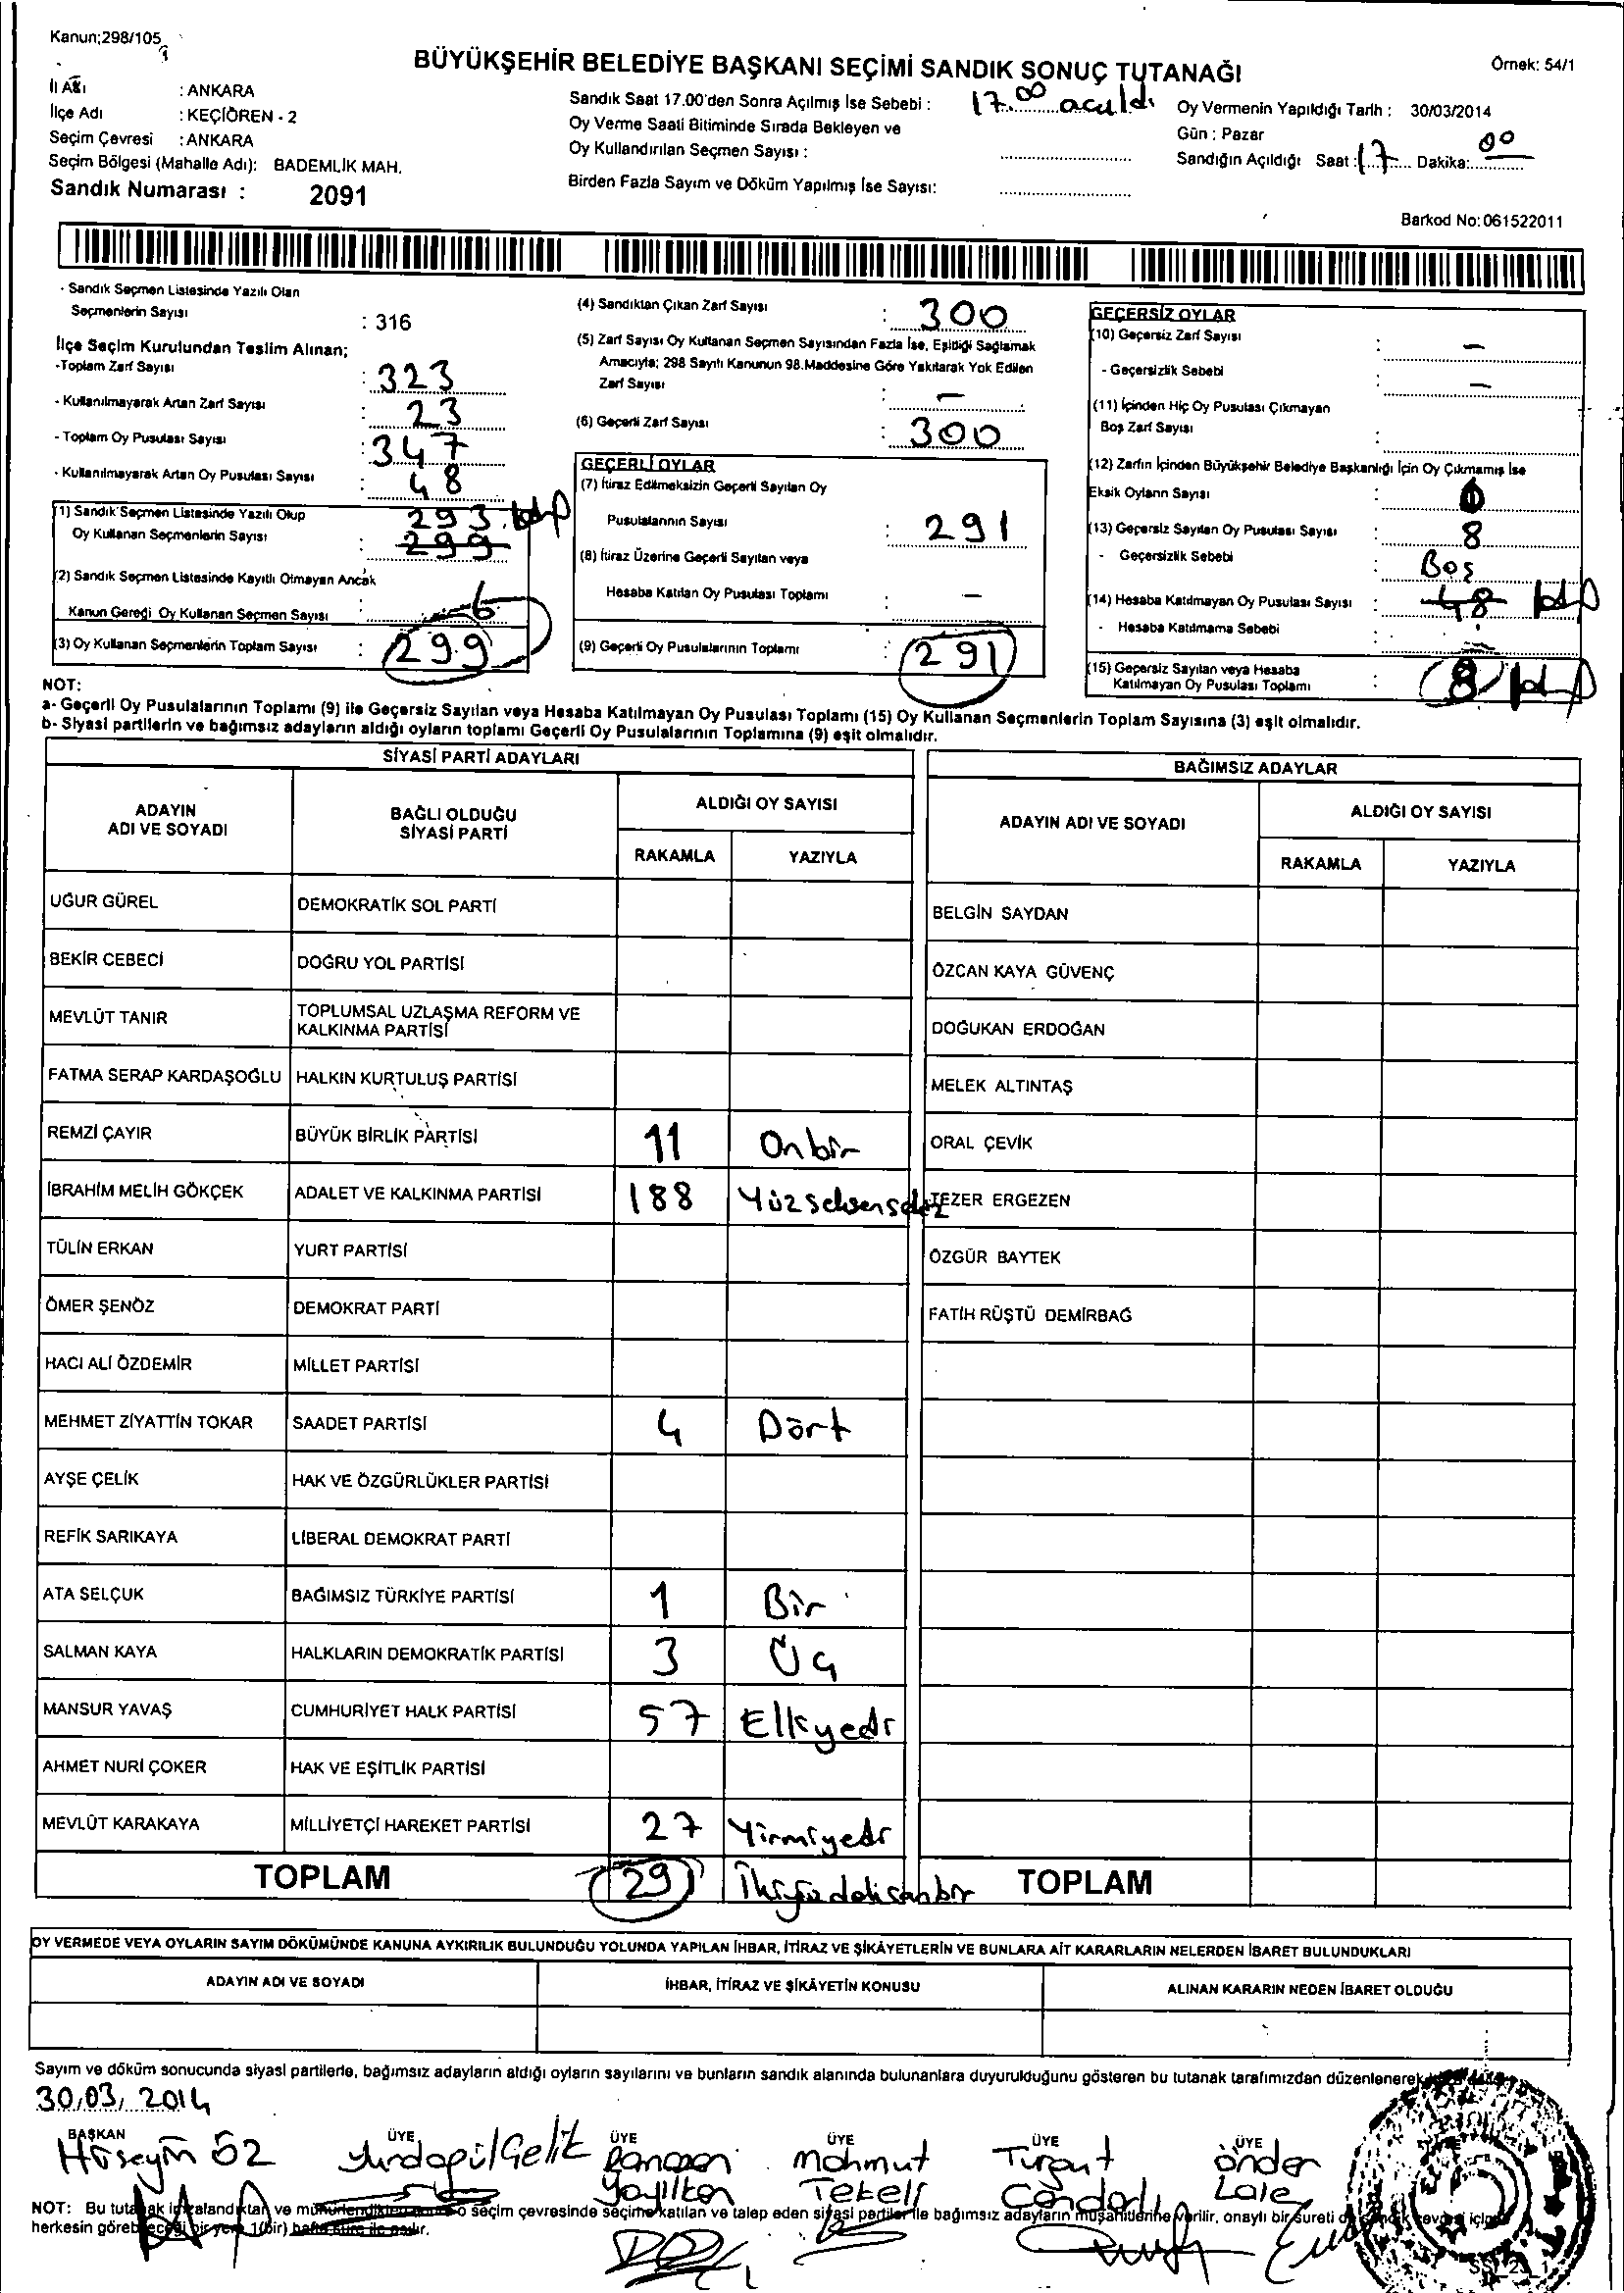 Kanun;298/105
BÜYÜKŞEHİR BELEDİYE BAŞKANI SEÇİMİ SANDIK SONUÇ TUTANAĞI
Örnek: 54/1
İl Adı : ANKARA
İlçe Adı : KEÇİÖREN - 2
Seçim Çevresi : ANKARA
Seçim Bölgesi (Mahalle Adı): BADEMLİK MAH.
Sandık Numarası : 2091
Sandık Saat 17.00'den Sonra Açılmış İse Sebebi : 17.00 açıldı
Oy Verme Saati Bitiminde Sırada Bekleyen ve
Oy Kullandırılan Seçmen Sayısı :
Birden Fazla Sayım ve Döküm Yapılmış İse Sayısı:
Oy Vermenin Yapıldığı Tarih : 30/03/2014
Gün : Pazar
Sandığın Açıldığı Saat : 17 Dakika: 00
Barkod No: 061522011
- Sandık Seçmen Listesinde Yazılı Olan
Seçmenlerin Sayısı : 316
İlçe Seçim Kurulundan Teslim Alınan;
-Toplam Zarf Sayısı : 323
- Kullanılmayarak Artan Zarf Sayısı : 23
- Toplam Oy Pusulası Sayısı : 347
- Kullanılmayarak Artan Oy Pusulası Sayısı : 48
(1) Sandık Seçmen Listesinde Yazılı Olup 293
Oy Kullanan Seçmenlerin Sayısı : 299
(2) Sandık Seçmen Listesinde Kayıtlı Olmayan Ancak
Kanun Gereği Oy Kullanan Seçmen Sayısı : 6
(3) Oy Kullanan Seçmenlerin Toplam Sayısı : 299
(4) Sandıktan Çıkan Zarf Sayısı : 300
(5) Zarf Sayısı Oy Kullanan Seçmen Sayısından Fazla İse, Eşitliği Sağlamak
Amacıyla; 298 Sayılı Kanunun 98.Maddesine Göre Yakılarak Yok Edilen
Zarf Sayısı : -
(6) Geçerli Zarf Sayısı : 300
GEÇERLİ OYLAR
(7) İtiraz Edilmeksizin Geçerli Sayılan Oy
Pusulalarının Sayısı : 291
(8) İtiraz Üzerine Geçerli Sayılan veya
Hesaba Katılan Oy Pusulası Toplamı : -
(9) Geçerli Oy Pusulalarının Toplamı : 291
GEÇERSİZ OYLAR
(10) Geçersiz Zarf Sayısı : -
- Geçersizlik Sebebi : -
(11) İçinden Hiç Oy Pusulası Çıkmayan
Boş Zarf Sayısı :
(12) Zarfın İçinden Büyükşehir Belediye Başkanlığı İçin Oy Çıkmamış İse
Eksik Oyların Sayısı :
(13) Geçersiz Sayılan Oy Pusulası Sayısı : 8
- Geçersizlik Sebebi : Boş
(14) Hesaba Katılmayan Oy Pusulası Sayısı : 48
- Hesaba Katılmama Sebebi :
(15) Geçersiz Sayılan veya Hesaba
Katılmayan Oy Pusulası Toplamı : 8
NOT:
a- Geçerli Oy Pusulalarının Toplamı (9) ile Geçersiz Sayılan veya Hesaba Katılmayan Oy Pusulası Toplamı (15) Oy Kullanan Seçmenlerin Toplam Sayısına (3) eşit olmalıdır.
b- Siyasi partilerin ve bağımsız adayların aldığı oyların toplamı Geçerli Oy Pusulalarının Toplamına (9) eşit olmalıdır.
SİYASİ PARTİ ADAYLARI
ADAYIN ADI VE SOYADI
BAĞLI OLDUĞU SİYASİ PARTİ
ALDIĞI OY SAYISI
RAKAMLA YAZIYLA
UĞUR GÜREL DEMOKRATİK SOL PARTİ
BEKİR CEBECİ DOĞRU YOL PARTİSİ
MEVLÜT TANIR TOPLUMSAL UZLAŞMA REFORM VE KALKINMA PARTİSİ
FATMA SERAP KARDAŞOĞLU HALKIN KURTULUŞ PARTİSİ
REMZİ ÇAYIR BÜYÜK BİRLİK PARTİSİ 11 Onbir
İBRAHİM MELİH GÖKÇEK ADALET VE KALKINMA PARTİSİ 188 Yüzseksensekiz
TÜLİN ERKAN YURT PARTİSİ
ÖMER ŞENÖZ DEMOKRAT PARTİ
HACI ALİ ÖZDEMİR MİLLET PARTİSİ
MEHMET ZİYATTİN TOKAR SAADET PARTİSİ 4 Dört
AYŞE ÇELİK HAK VE ÖZGÜRLÜKLER PARTİSİ
REFİK SARIKAYA LİBERAL DEMOKRAT PARTİ
ATA SELÇUK BAĞIMSIZ TÜRKİYE PARTİSİ 1 Bir
SALMAN KAYA HALKLARIN DEMOKRATİK PARTİSİ 3 Üç
MANSUR YAVAŞ CUMHURİYET HALK PARTİSİ 57 Elliyedi
AHMET NURİ ÇOKER HAK VE EŞİTLİK PARTİSİ
MEVLÜT KARAKAYA MİLLİYETÇİ HAREKET PARTİSİ 27 Yirmiyedi
TOPLAM 291 İkiyüzdoksanbir
BAĞIMSIZ ADAYLAR
ADAYIN ADI VE SOYADI
ALDIĞI OY SAYISI
RAKAMLA YAZIYLA
BELGİN SAYDAN
ÖZCAN KAYA GÜVENÇ
DOĞUKAN ERDOĞAN
MELEK ALTINTAŞ
ORAL ÇEVİK
TEZER ERGEZEN
ÖZGÜR BAYTEK
FATİH RÜŞTÜ DEMİRBAĞ
TOPLAM
OY VERMEDE VEYA OYLARIN SAYIM DÖKÜMÜNDE KANUNA AYKIRILIK BULUNDUĞU YOLUNDA YAPILAN İHBAR, İTİRAZ VE ŞİKÂYETLERİN VE BUNLARA AİT KARARLARIN NELERDEN İBARET BULUNDUKLARI
ADAYIN ADI VE SOYADI İHBAR, İTİRAZ VE ŞİKÂYETİN KONUSU ALINAN KARARIN NEDEN İBARET OLDUĞU
Sayım ve döküm sonucunda siyasi partilerle, bağımsız adayların aldığı oyların sayılarını ve bunların sandık alanında bulunanlara duyurulduğunu gösteren bu tutanak tarafımızdan düzenlenerek
30/03/2014
BAŞKAN ÜYE ÜYE ÜYE ÜYE ÜYE
Hüseyin Öz Yurdagül Çelik Ramazan Mahmut Turgut Önder
Tekeli Lale
NOT: Bu tutanak imzalandıktan ve mühürlendikten sonra o seçim çevresinde seçime katılan ve talep eden siyasi partiler ile bağımsız adayların müşahitlerine verilir, onaylı bir sureti de sandık çevresi için
herkesin görebileceği bir yere 1(bir) hafta süre ile asılır.